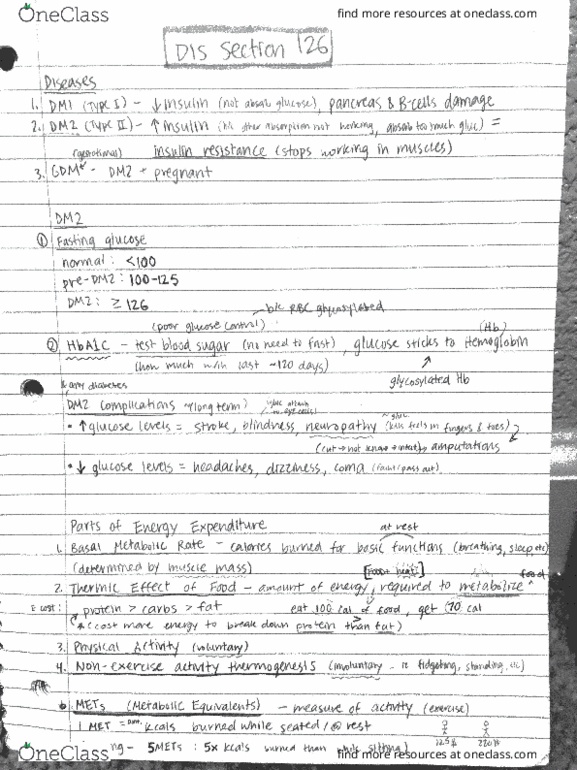 OneClass
find more resources at oneclass.com
DIS Section 126
Diseases
1. DM1 (Type I) - ↓ insulin (not absorb glucose), pancreas & B-cells damage
2. DM2 (Type II) - ↑ insulin (b/c after absorption not working, absorb too much gluc) =
insulin resistance (stops working in muscles)
(gestational)
3. GDM - DM2 + pregnant
DM2
① Fasting glucose
normal: <100
pre-DM2: 100-125
DM2: ≥ 126
b/c RBC glycosylated
(poor glucose control)
(Hb)
② HbA1C - test blood sugar (no need to fast), glucose sticks to Hemoglobin
(how much w/in last ~120 days)
glycosylated Hb
& any diabetes
DM2 Complications (long term)
• ↑ glucose levels = stroke, blindness, neuropathy (feels in fingers & toes)
(cut → not know → infect) amputations
• ↓ glucose levels = headaches, dizziness, coma (faint/pass out)
Parts of Energy Expenditure
at rest
1. Basal Metabolic Rate - calories burned for basic functions (breathing, sleep etc)
(determined by muscle mass)
food
2. Thermic Effect of Food - amount of energy required to metabolize ^
E cost: protein > carbs > fat
eat 100 cal of food, get 70 cal
(cost more energy to break down protein than fat)
3. Physical Activity (voluntary)
4. Non-exercise activity thermogenesis (involuntary - ie fidgeting, standing, etc)
METs (Metabolic Equivalents) - measure of activity (exercise)
1 MET = kcals burned while seated / @ rest
125# 220#
ng - 5METs : 5x kcals burned than while sitting)
OneClass
find more resources at oneclass.com